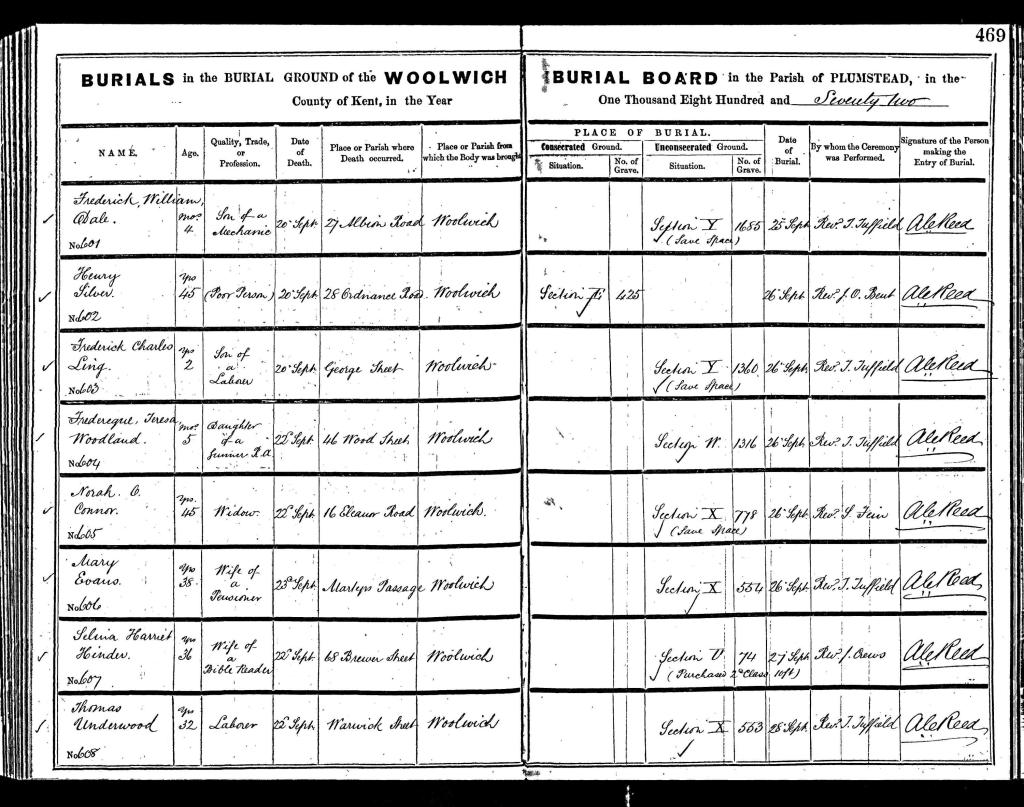 469
BURIALS in the BURIAL GROUND of the WOOLWICH BURIAL BOARD in the Parish of PLUMSTEAD, in the
County of Kent, in the Year One Thousand Eight Hundred and Seventy two
NAME. Age. Quality, Trade, or Profession. Date of Death. Place or Parish where Death occurred. Place or Parish from which the Body was brought PLACE OF BURIAL. Consecrated Ground. Situation. No. of Grave. Unconsecrated Ground. Situation. No. of Grave. Date of Burial. By whom the Ceremony was Performed. Signature of the Person making the Entry of Burial.
Frederick, William,
Dale. mos 4 Son of a Mechanic 20 Sept 27 Albion Road Woolwich Section V 1655 25 Sept Rev. T. Tuffield
(Save Space)
No 601
Henry
Silver. yrs 45 (Poor Person) 20 Sept 28 Ordnance Road. Woolwich Section 425 26 Sept Rev. J. O. Bent
No 602
Frederick Charles
Ling. yrs 2 Son of a Laborer 20 Sept George Street Woolwich Section V 1360 26 Sept Rev. T. Tuffield
(Save Space)
No 603
Frederique, Teresa
Woodland. mos 5 Daughter of a Gunner R.A 22 Sept 46 Wood Street Woolwich Section W. 1316 26 Sept Rev. T. Tuffield
No 604
Norah. O.
Connor. yrs. 45 Widow. 22 Sept 16 Eleanor Road Woolwich. Section X 778 26 Sept Rev. S.
(Save Space)
No 605
Mary
Evans. yrs 38. Wife of a Pensioner 23 Sept Martyrs Passage Woolwich Section X 554 26 Sept Rev. T. Tuffield
No 606
Selina Harriet
Hinder. yrs 36 Wife of a Bible Reader 22 Sept 68 Brewer Street Woolwich Section U 74 27 Sept Rev. J. Crews
(Purchased 2d Class 10ft)
No 607
Thomas
Underwood yrs 32 Laborer 22 Sept Warwick Street Woolwich Section X 553 28 Sept Rev. T. Tuffield
No 608